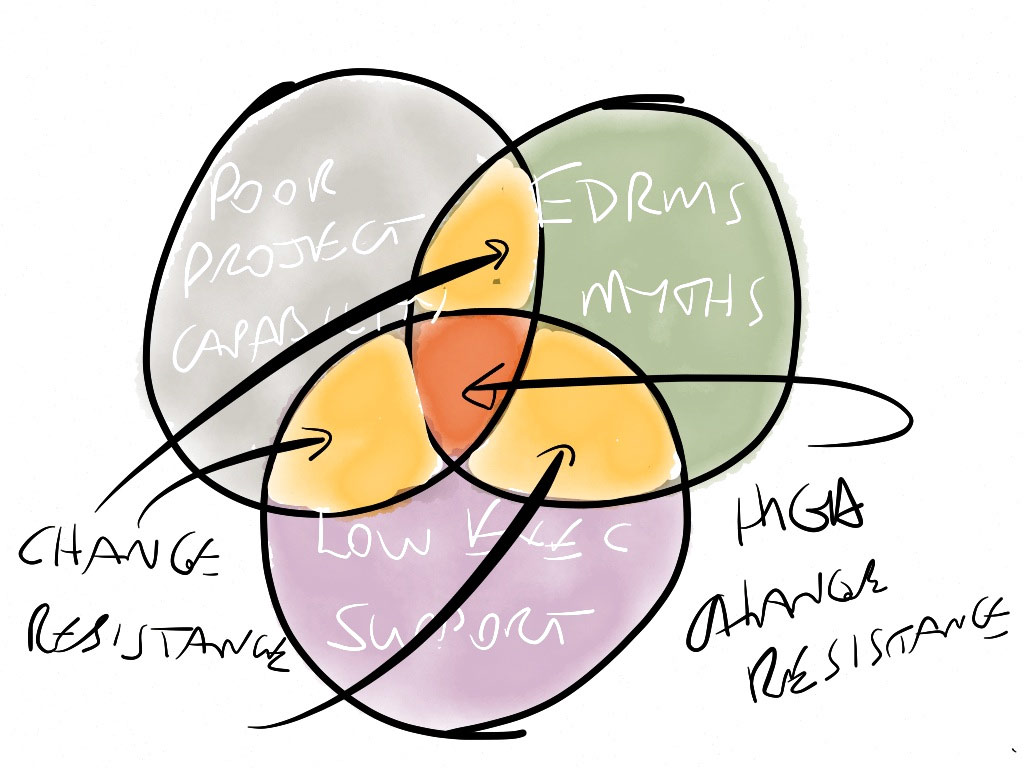 POOR
PROJECT
CAPABILITY
EDRMS
MYTHS
LOW EXEC
SUPPORT
CHANGE
RESISTANCE
HIGH
CHANGE
RESISTANCE